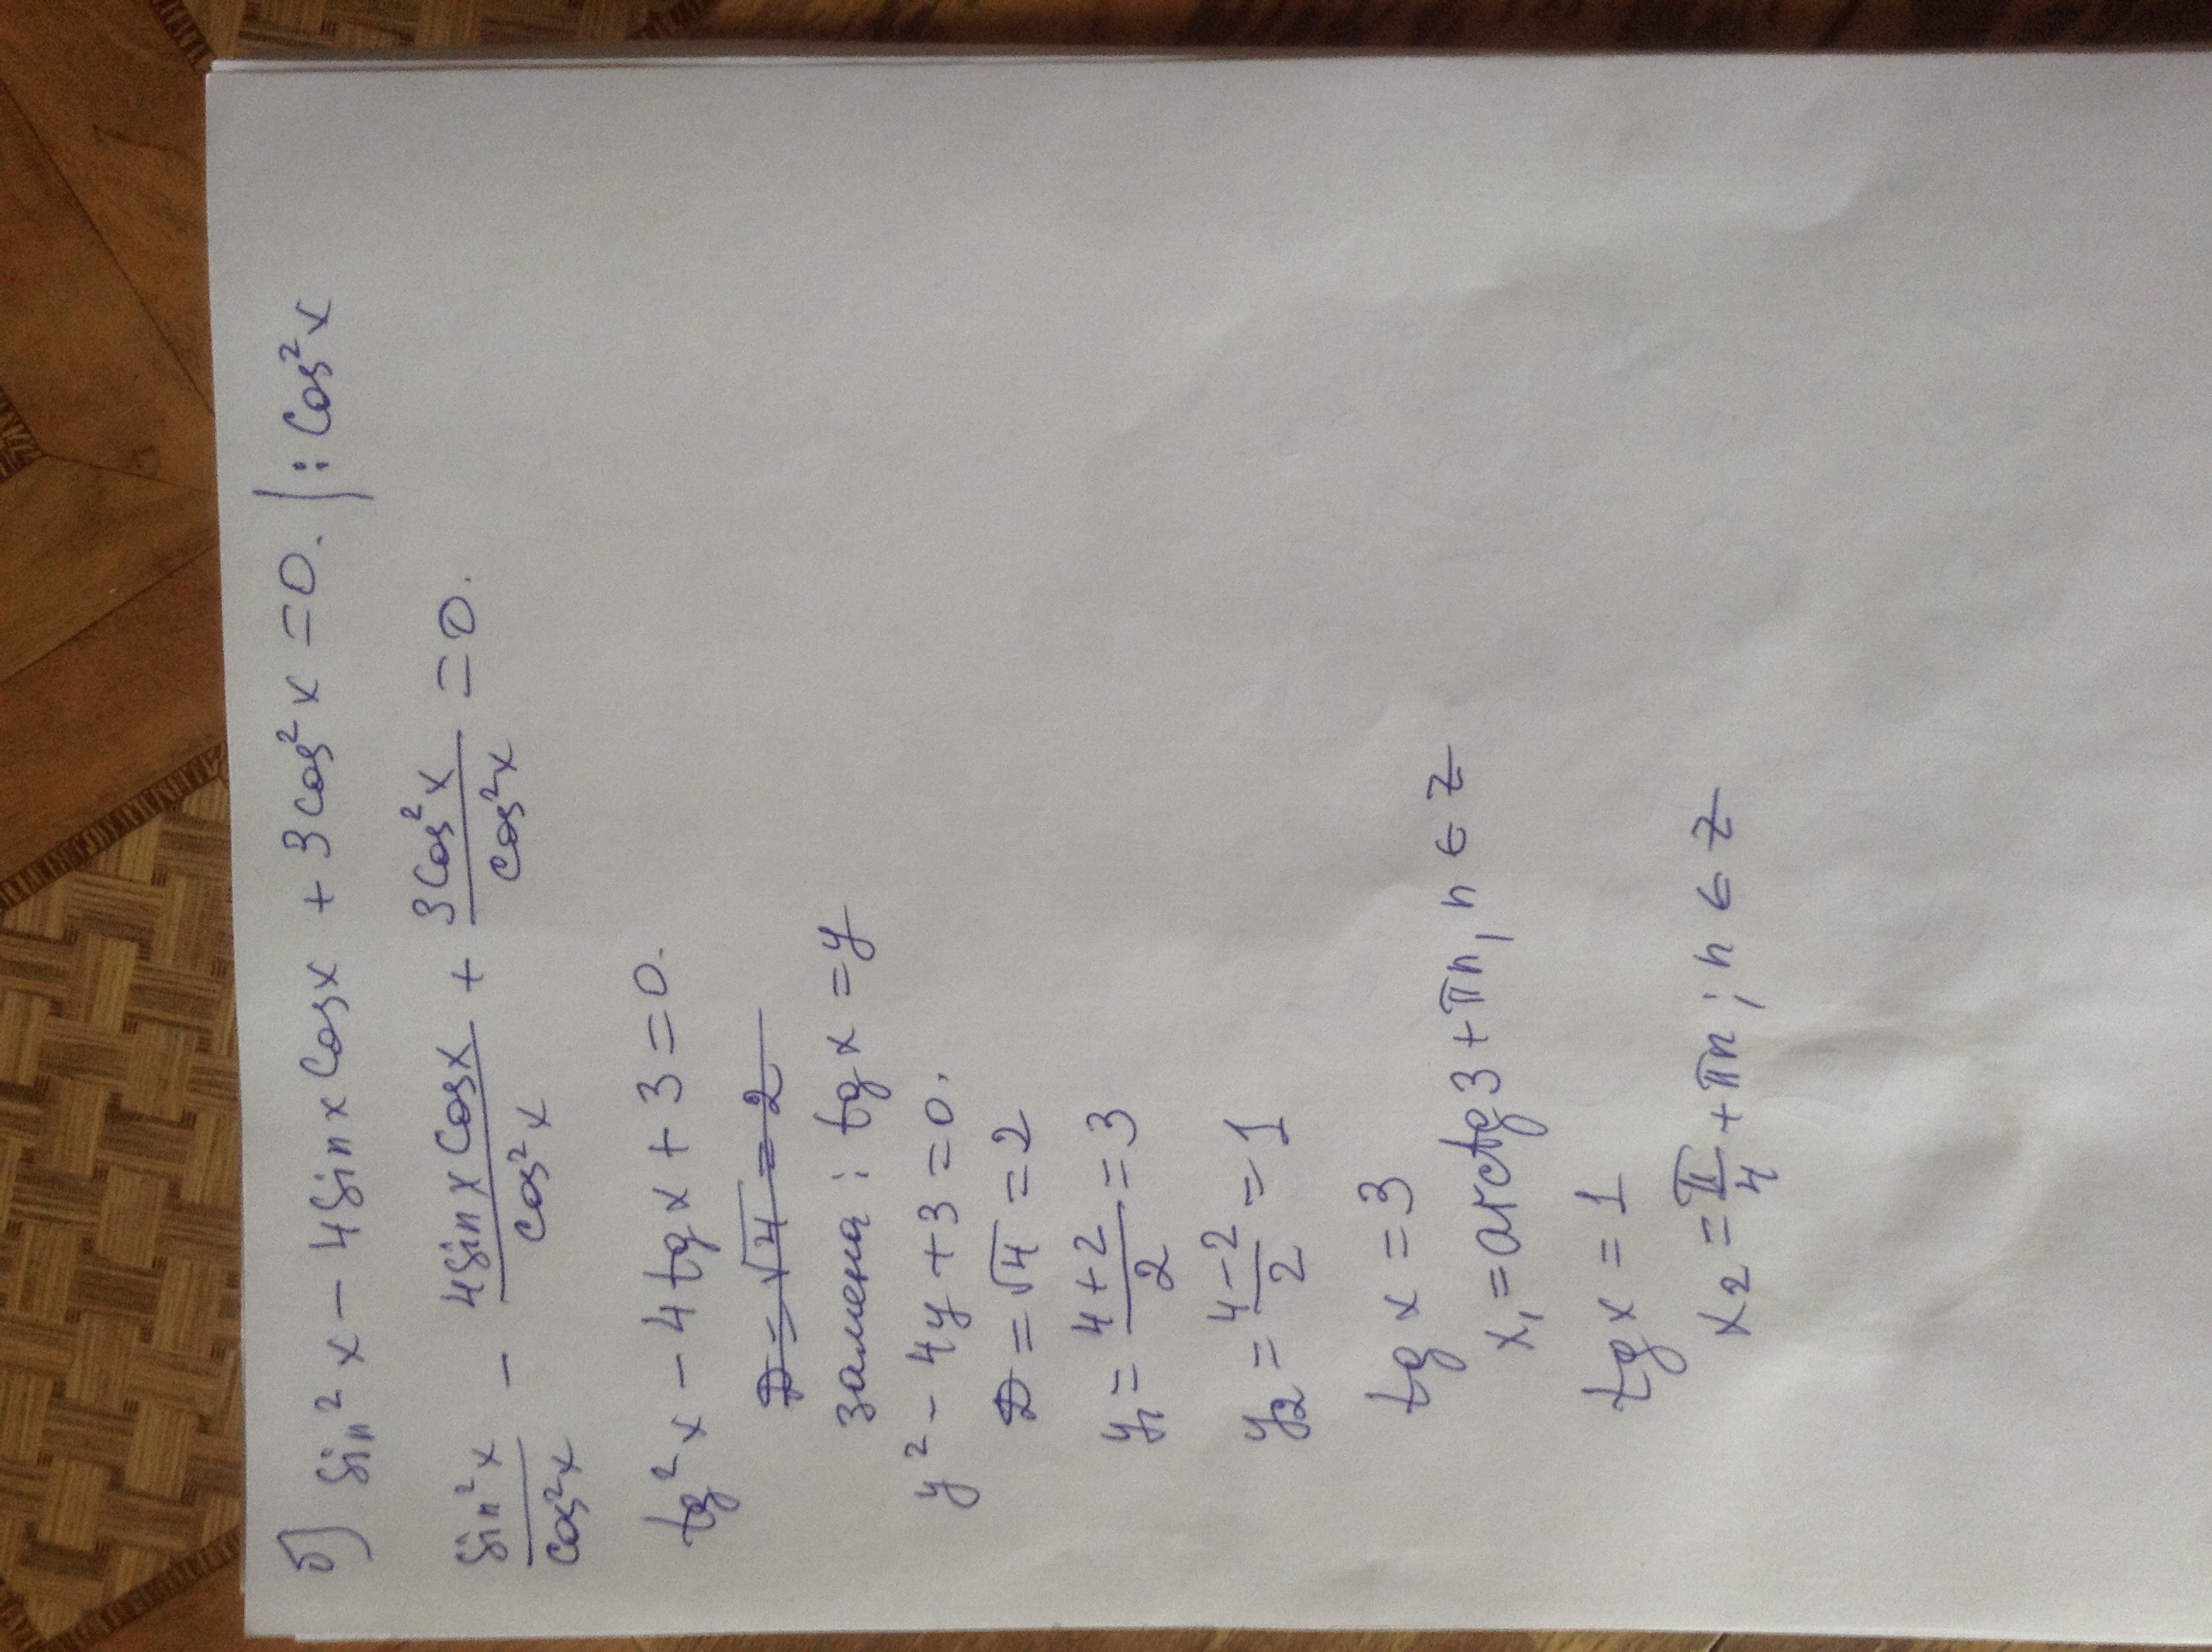 б) sin²x - 4sinx cosx + 3cos²x = 0. | : cos²x
sin²x/cos²x - 4sinx cosx/cos²x + 3cos²x/cos²x = 0.
tg²x - 4tgx + 3 = 0.
D = √4 = 2
замена: tgx = y
y² - 4y + 3 = 0.
D = √4 = 2
y₁ = (4+2)/2 = 3
y₂ = (4-2)/2 = 1
tgx = 3
x₁ = arctg3 + πn, n ∈ Z
tgx = 1
x₂ = π/4 + πn; n ∈ Z